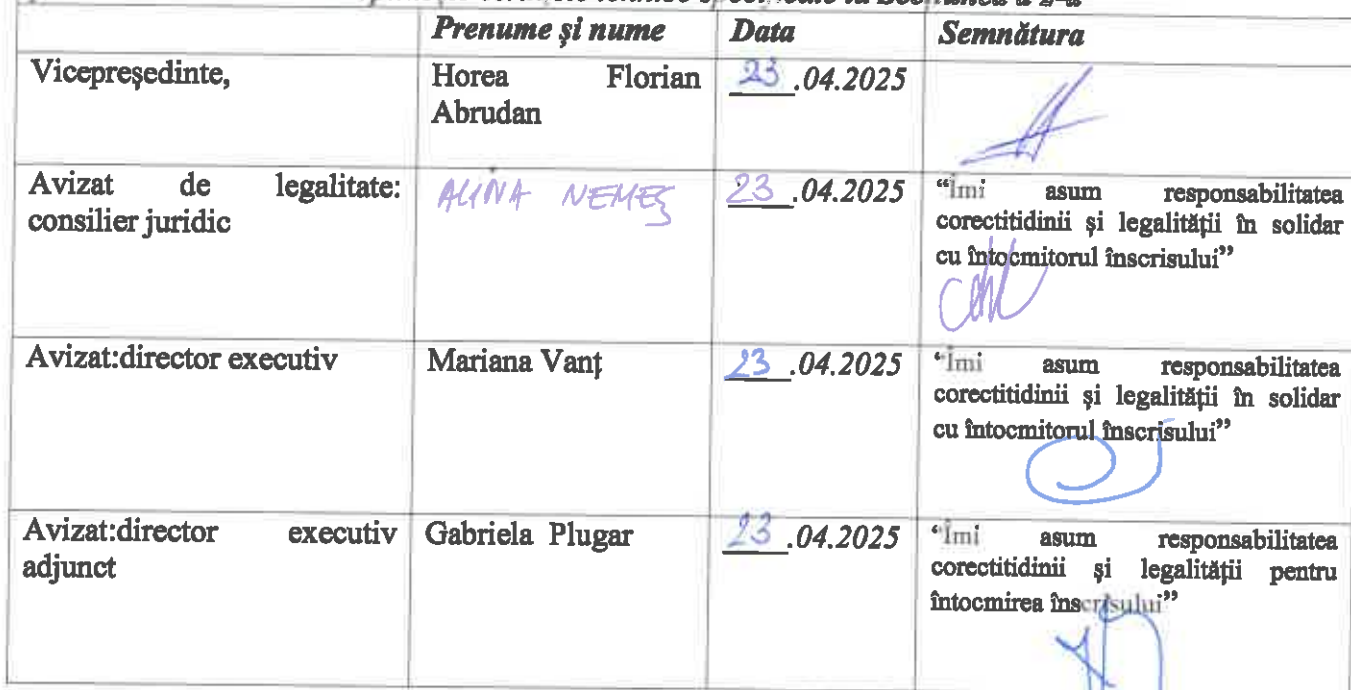 Prenume și nume Data Semnătura
Vicepreședinte, Horea Florian 23.04.2025
Abrudan
Avizat de legalitate: ALINA NEMEȘ 23.04.2025 “Îmi asum responsabilitatea
consilier juridic corectitidinii și legalității în solidar
cu întocmitorul înscrisului”
Avizat:director executiv Mariana Vanț 23.04.2025 “Îmi asum responsabilitatea
corectitidinii și legalității în solidar
cu întocmitorul înscrisului”
Avizat:director executiv Gabriela Plugar 23.04.2025 “Îmi asum responsabilitatea
adjunct corectitidinii și legalității pentru
întocmirea înscrisului”